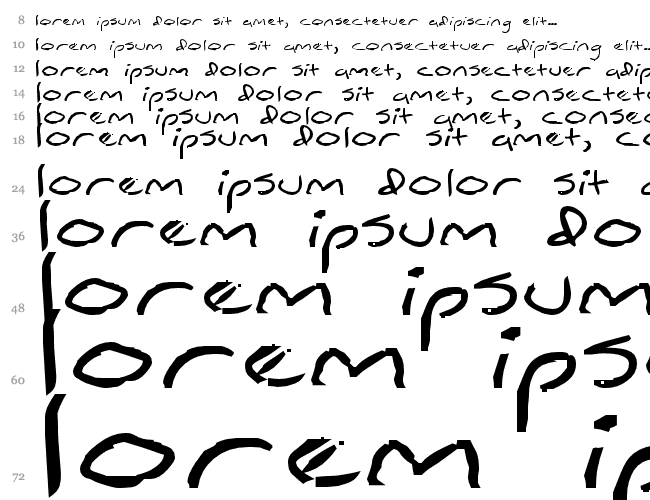 8 lorem ipsum dolor sit amet, consectetuer adipiscing elit...
10 lorem ipsum dolor sit amet, consectetuer adipiscing elit...
12 lorem ipsum dolor sit amet, consectetuer adip
14 lorem ipsum dolor sit amet, consectetu
16 lorem ipsum dolor sit amet, consec
18 lorem ipsum dolor sit amet, co
24 lorem ipsum dolor sit a
36 lorem ipsum do
48 lorem ipsum
60 lorem ips
72 lorem ip